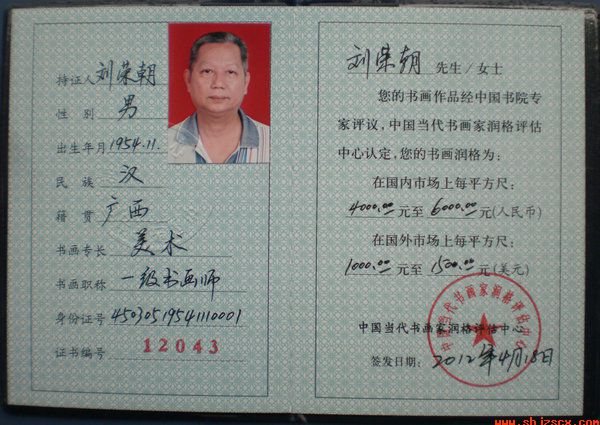 持证人 刘荣朝
性 别 男
出生年月 1954.11.
民 族 汉
籍 贯 广西
书画专长 美术
书画职称 一级书画师
身份证号 45030519541110001
证书编号 12043
刘荣朝 先生／女士
您的书画作品经中国书院专
家评议，中国当代书画家润格评估
中心认定，您的书画润格为：
在国内市场上每平方尺：
4000.00 元至 6000.00 元(人民币)
在国外市场上每平方尺：
1000.00 元至 1500.00 元(美元)
中国当代书画家润格评估中心
中国当代书画家润格评估中心
签发日期： 2012年4月18日
www.shjzscx.com